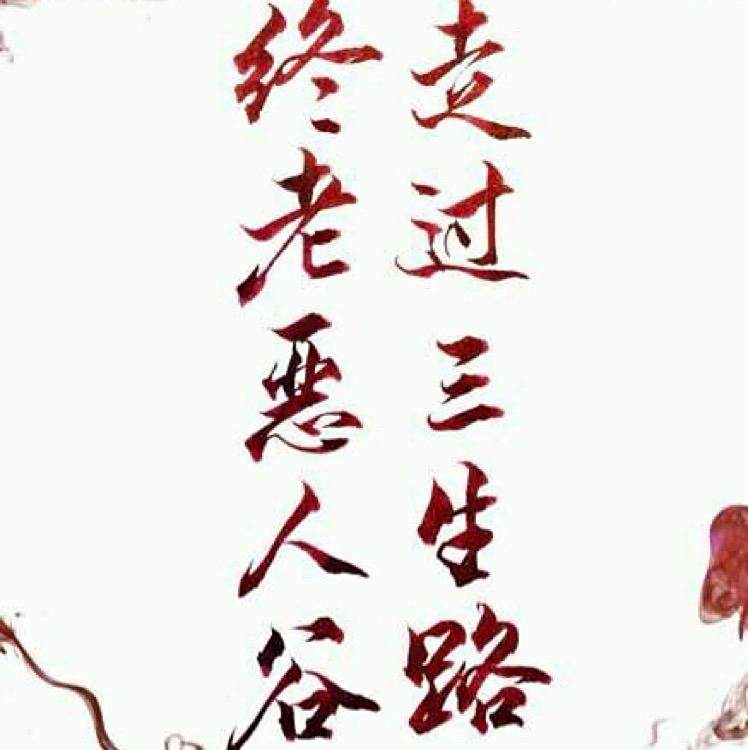 走过三生路
终老恶人谷